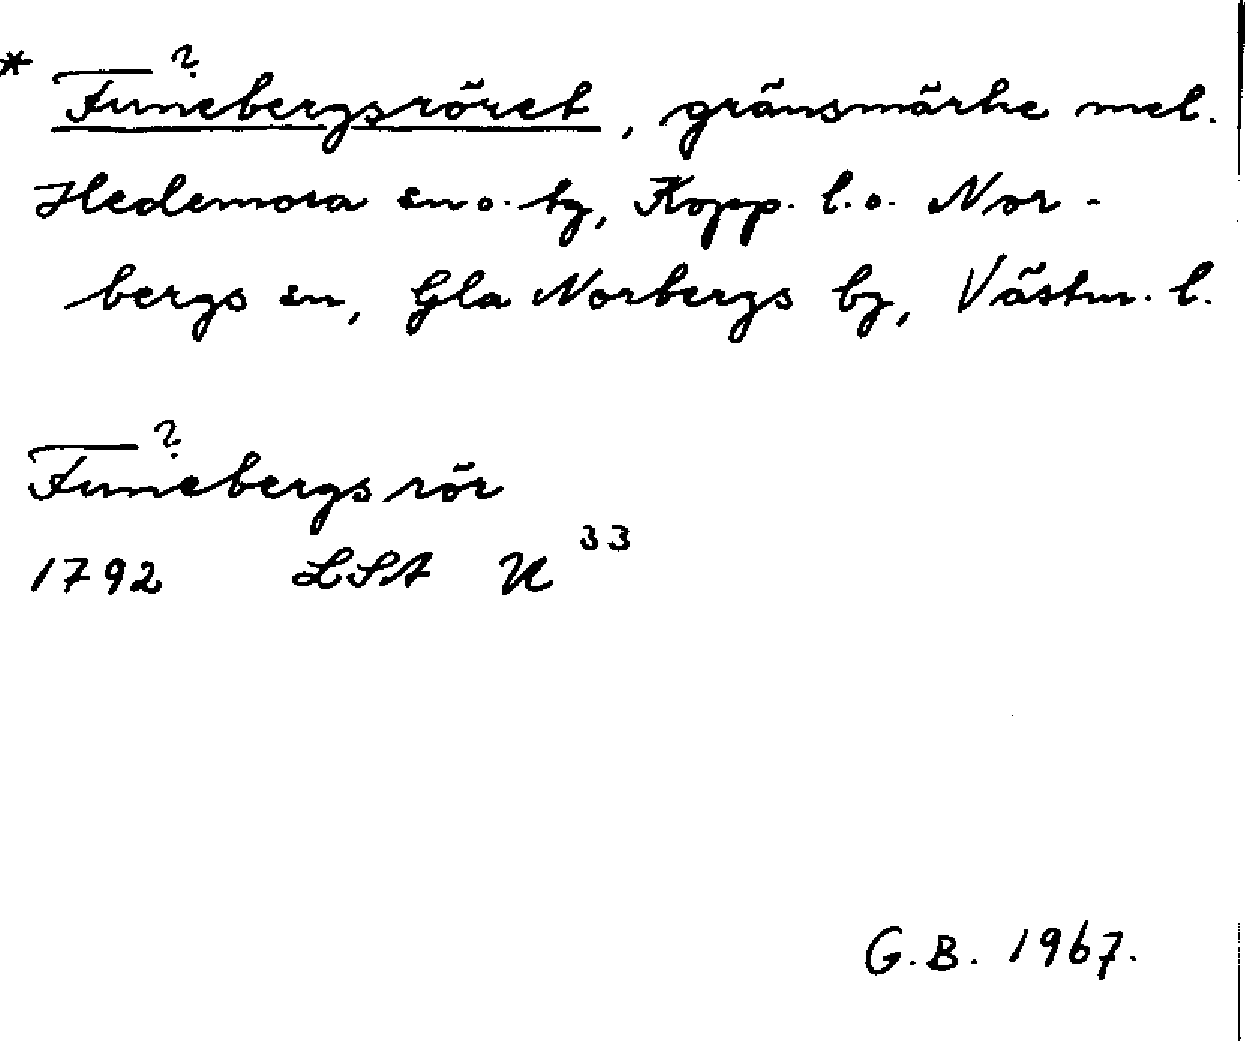 * Funebergsröret, gränsmärke mel.
Hedemora sn o. by, Kopp. l. o. Nor-
bergs sn, Gla Norbergs by, Västm. l.
Funebergs rör
1792 LSA U 33
G.B. 1967.